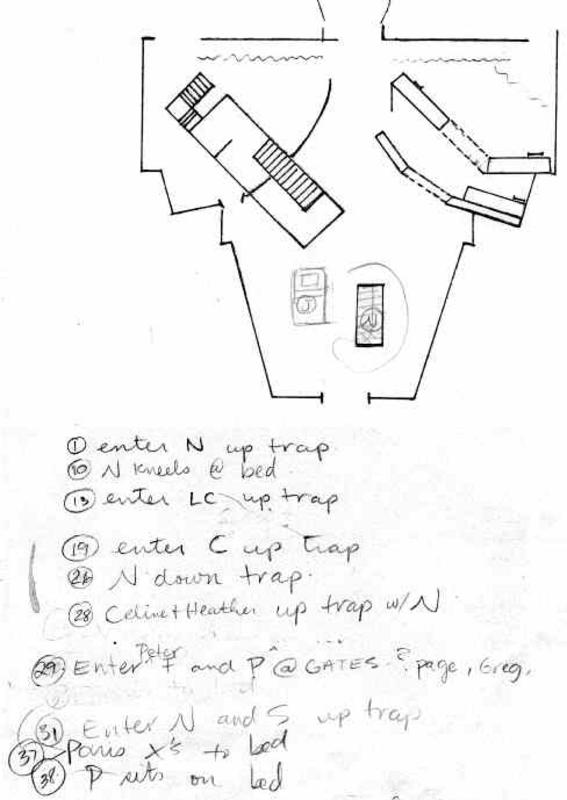 J
N
① enter N up trap.
⑩ N kneels @ bed.
⑬ enter LC up trap
⑲ enter C up trap
N down trap.
㉘ Celine + Heather up trap w/ N
Peter
㉙ Enter F and P @ GATES ? page, Greg,
㉛ Enter N and S up trap
㊲ Paris X's to bed
㊳ P sits on bed